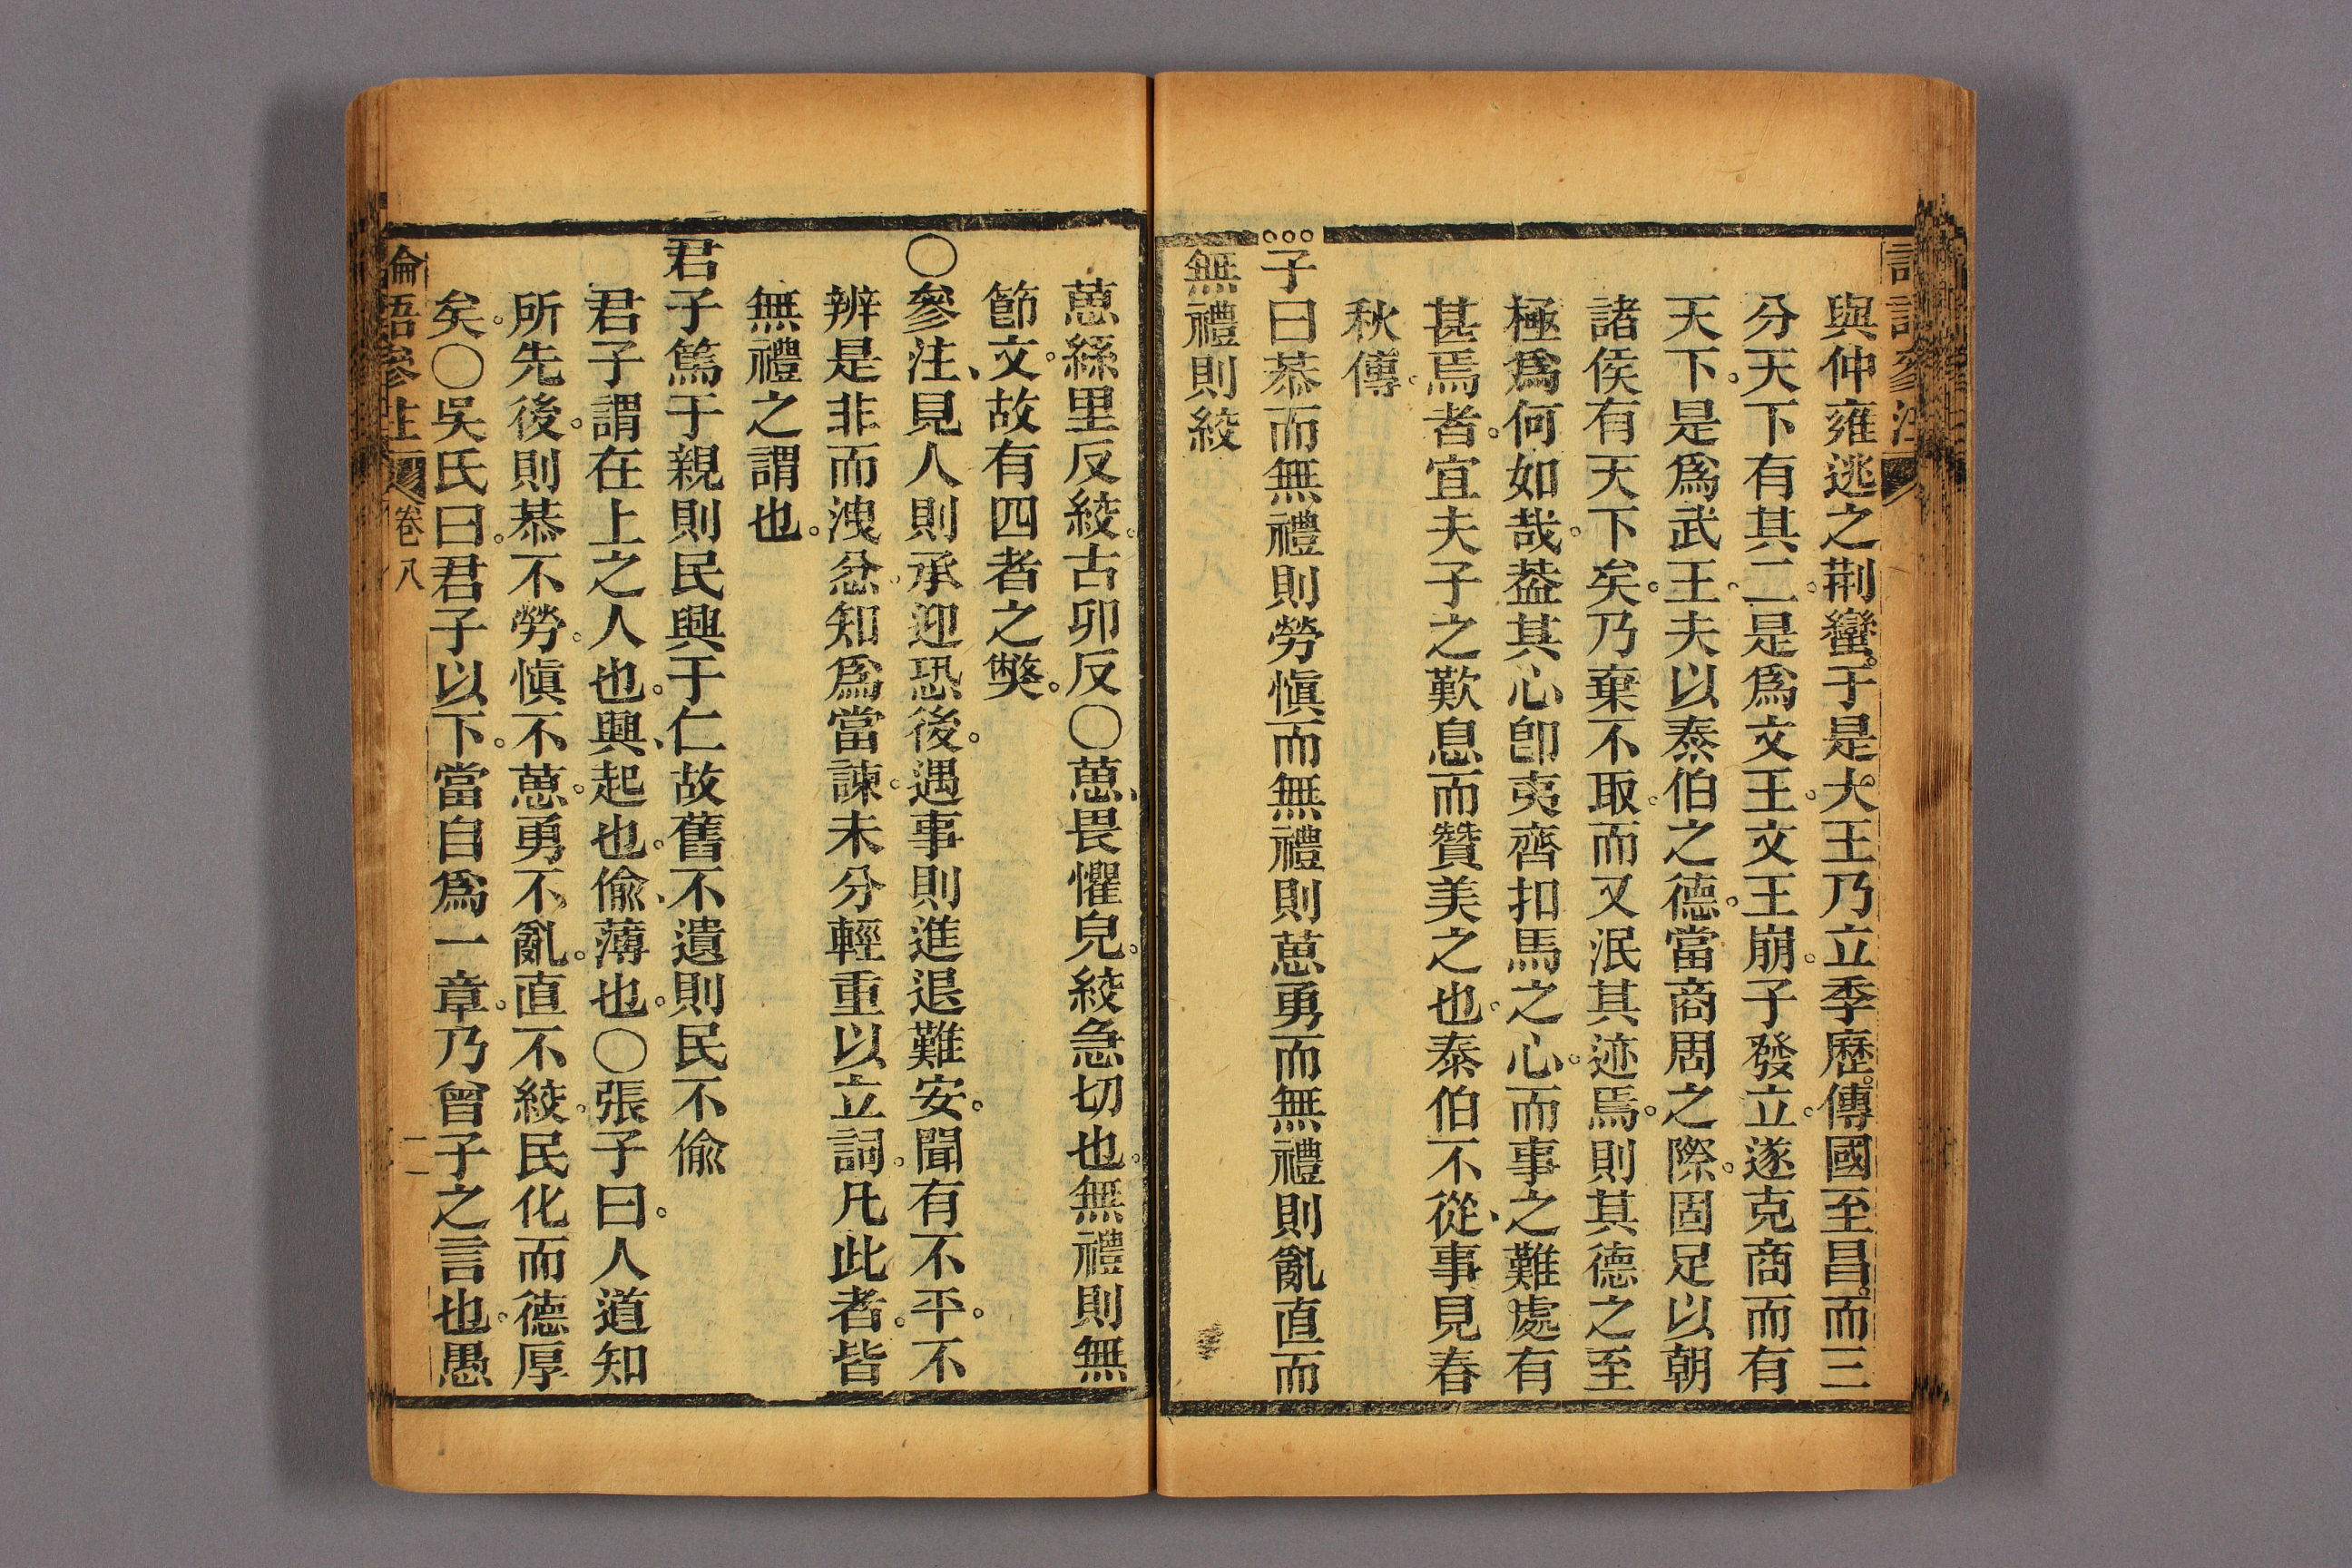 與仲雍逃之荆蠻。于是。大王乃立季歷。傳國至昌。而三
分天下有其二。是爲文王。文王崩。子發立。遂克商而有
天下。是爲武王。夫以泰伯之德。當商周之際。固足以朝
諸侯有天下矣。乃棄不取。而又泯其迹焉。則其德之至
極爲何如哉。葢其心卽夷齊扣馬之心。而事之難處有
甚焉者。宜夫子之歎息而贊美之也。泰伯不從、事見春
秋傳。
子曰恭而無禮則勞愼而無禮則葸勇而無禮則亂直而
無禮則絞
葸絲里反絞。古卯反〇葸、畏懼皃。絞急切也。無禮則無
節文。故有四者之獘。
〇參注、見人則承迎恐後。遇事則進退難安。聞有不平。不
辨是非而洩忿。知爲當諫。未分輕重以立詞。凡此者。皆
無禮之謂也。
君子篤于親則民興于仁故舊不遺則民不偸
君子謂在上之人也。興、起也。偸、薄也。〇張子曰。人道知
所先後。則恭不勞。愼不葸。勇不亂。直不絞。民化而德厚
矣。〇吳氏曰。君子以下。當自爲一章。乃曾子之言也。愚
論語參注 卷八 二